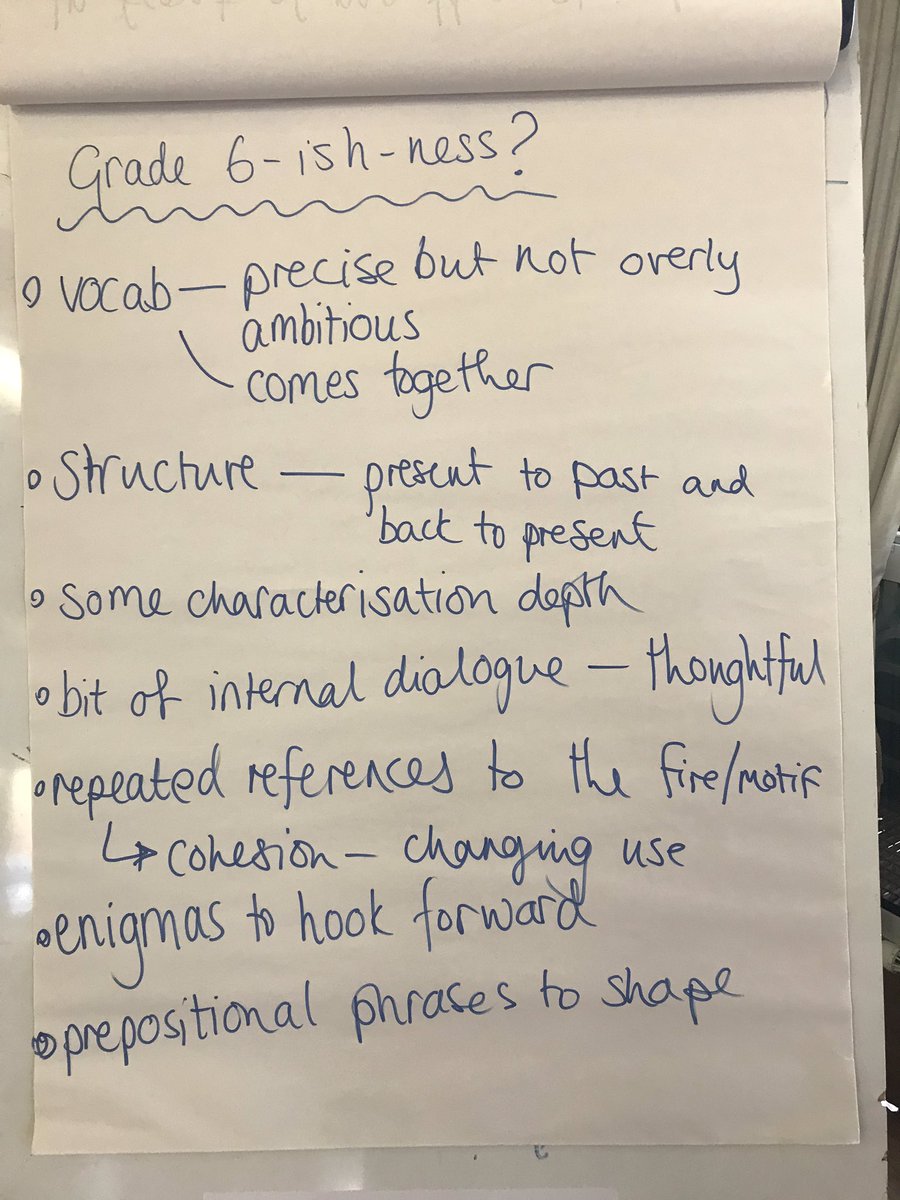 Grade 6-ish-ness?
vocab — precise but not overly
ambitious
comes together
Structure — present to past and
back to present
some characterisation depth
bit of internal dialogue — thoughtful
repeated references to the fire/motif
↳ cohesion — changing use
enigmas to hook forward
prepositional phrases to shape